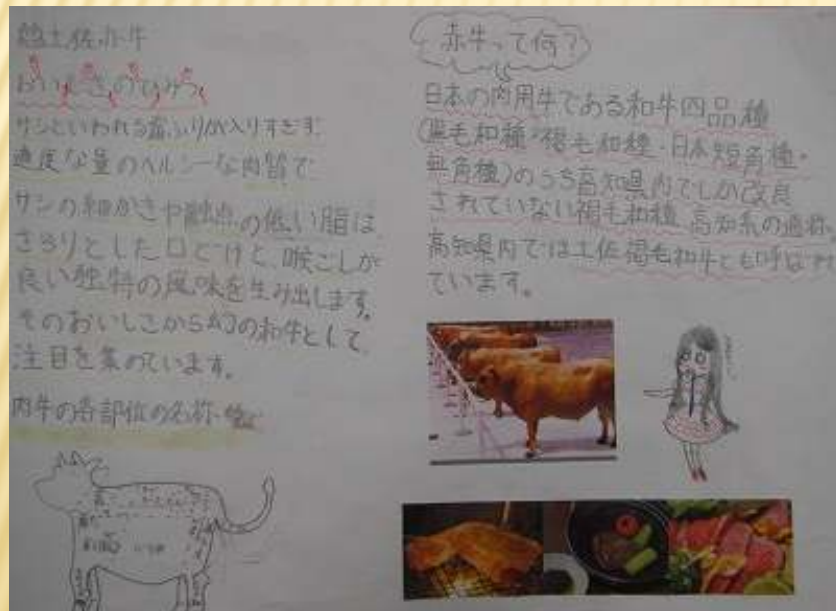 土佐赤牛
おいしさのひみつ
サシといわれる霜ふりが入りすぎず
適度な量のヘルシーな肉質で
サシの細かさや融点の低い脂は、
さらりとした口どけと、喉ごしが
良い独特の風味を生み出します。
そのおいしさから幻の和牛として
注目を集めています。
肉牛の各部位の名称
赤牛って何？
日本の肉用牛である和牛四品種
(黒毛和種・褐毛和種・日本短角種・
無角種)のうち高知県内でしか改良
されていない褐毛和種 高知系の通称。
高知県内では土佐褐毛和牛とも呼ばれ
ています。